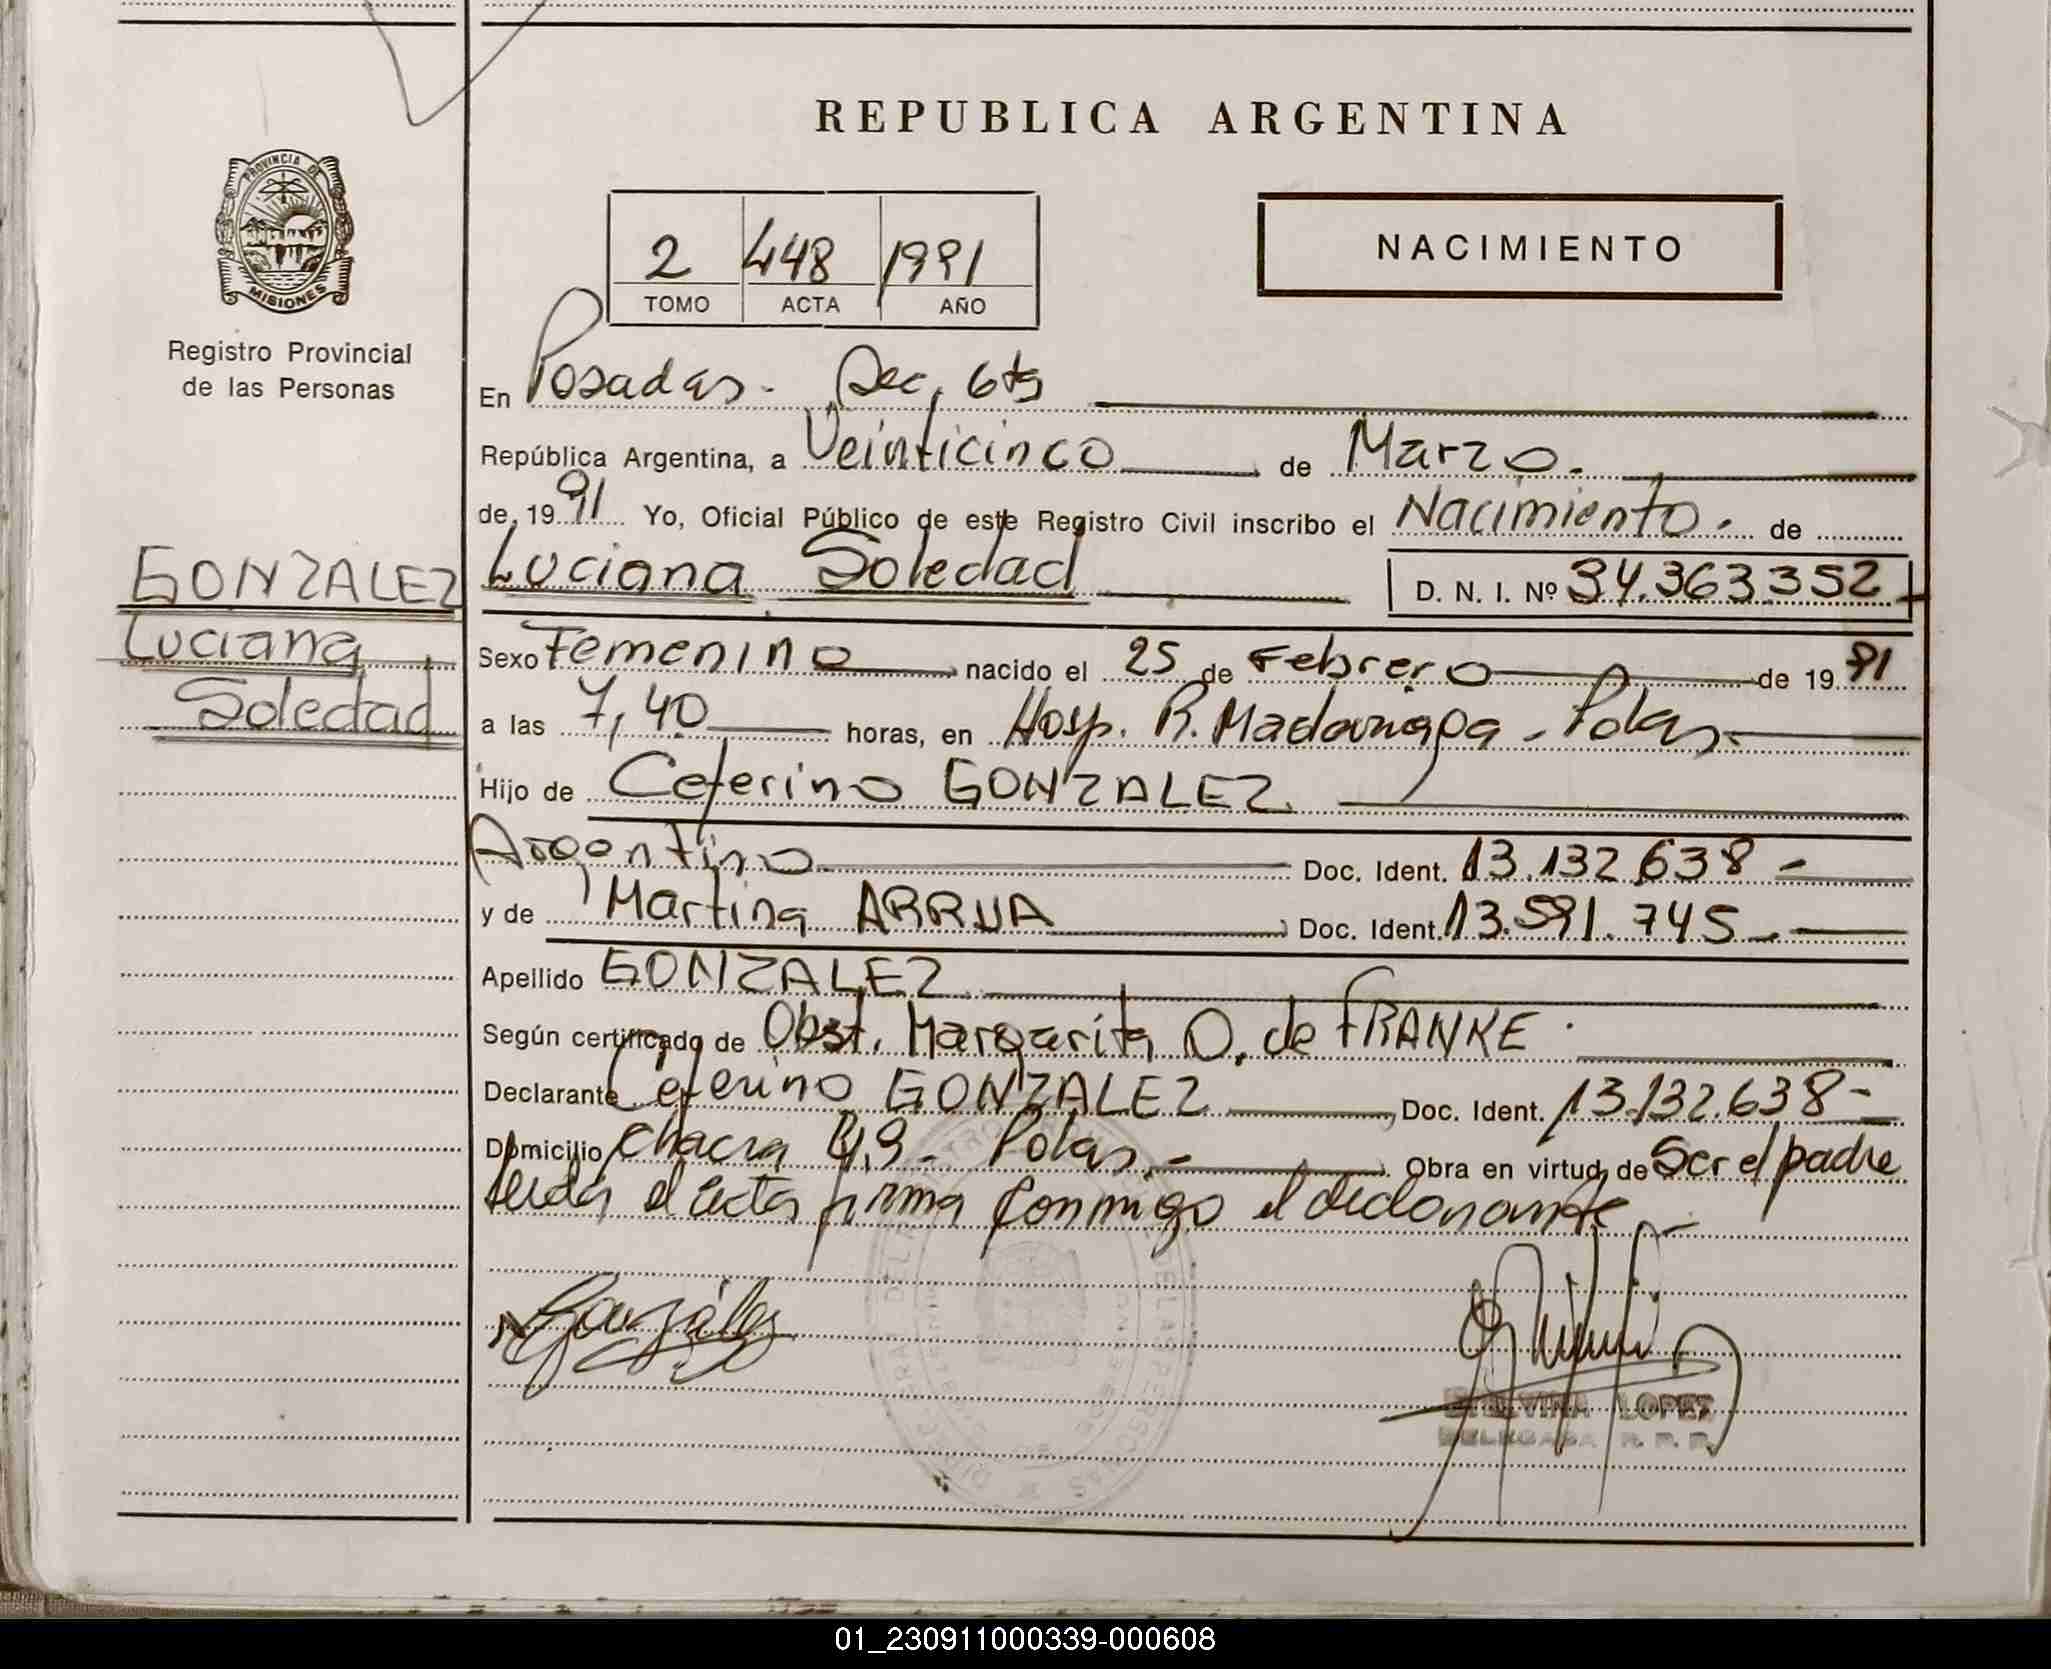 REPUBLICA ARGENTINA
PROVINCIA DE
MISIONES
Registro Provincial
de las Personas
2 448 1991
TOMO ACTA AÑO
NACIMIENTO
En Posadas. Sec. 6ta
República Argentina, a Veinticinco de Marzo.
de 1991 Yo, Oficial Público de este Registro Civil inscribo el Nacimiento. de
GONZALEZ
Luciana
Soledad
Luciana Soledad D. N. I. Nº 34.363.352
Sexo Femenino nacido el 25 de Febrero de 1991
a las 7,40 horas, en Hosp. R. Madariaga - Pdas.
Hijo de Ceferino GONZALEZ.
Argentino Doc. Ident. 13.132.638 -
y de Martina ARRUA Doc. Ident. 13.591.745 -
Apellido GONZALEZ
Según certificado de Obst. Margarita O. de FRANKE.
Declarante Ceferino GONZALEZ, Doc. Ident. 13.132.638 -
Domicilio Chacra 43 - Pdas. - Obra en virtud de Ser el padre
Leida el acta firma conmigo el declarante -
González
ETELVINA LOPEZ
DELEGADA R. P. P.
01_230911000339-000608